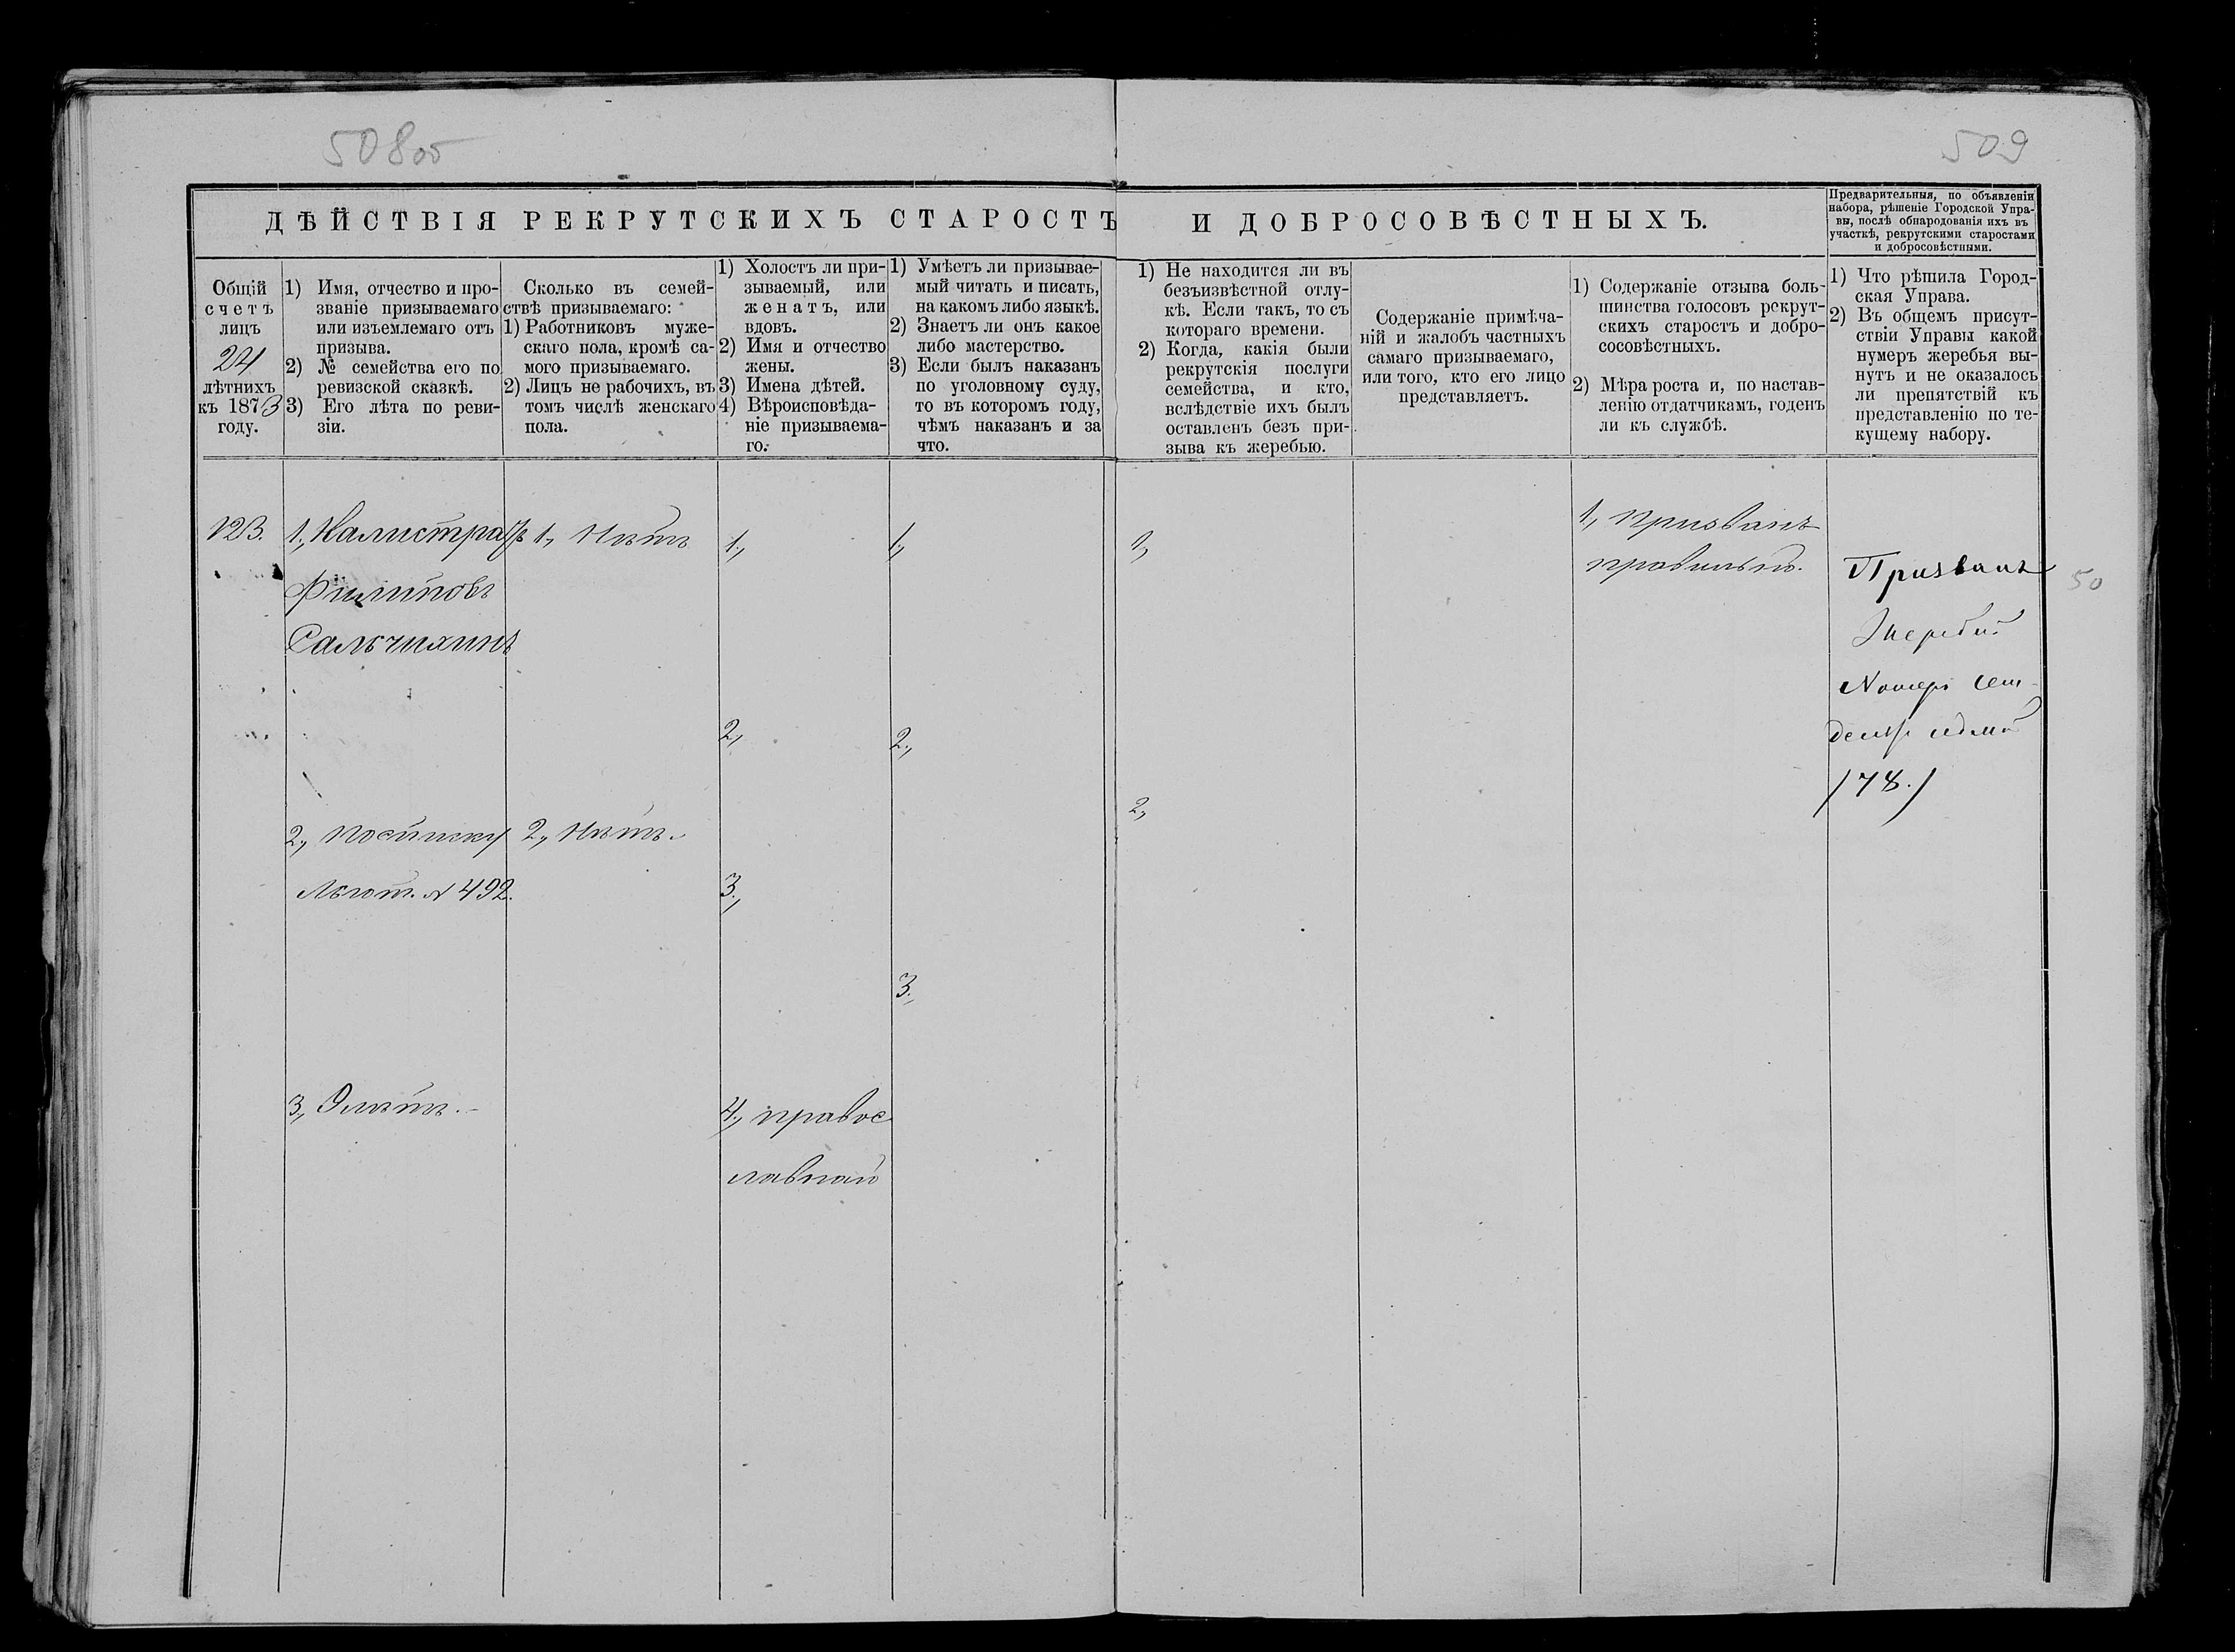 508 об
509
ДѢЙСТВІЯ РЕКРУТСКИХЪ СТАРОСТЪ И ДОБРОСОВѢСТНЫХЪ.
Предварительныя, по объявленіи
набора, рѣшеніе Городской Упра-
вы, послѣ обнародованія ихъ въ
участкѣ, рекрутскими старостами
и добросовѣстными.
Общій
счетъ
лицъ
24
лѣтнихъ
къ 1873
году.
1) Имя, отчество и про-
званіе призываемаго
или изъемлемаго отъ
призыва.
2) № семейства его по
ревизской сказкѣ.
3) Его лѣта по реви-
зіи.
Сколько въ семей-
ствѣ призываемаго:
1) Работниковъ муже-
скаго пола, кромѣ са-
мого призываемаго.
2) Лицъ не рабочихъ, въ
томъ числѣ женскаго
пола.
1) Холостъ ли при-
зываемый, или
женатъ, или
вдовъ.
2) Имя и отчество
жены.
3) Имена дѣтей.
4) Вѣроисповѣда-
ніе призываема-
го.
1) Умѣетъ ли призывае-
мый читать и писать,
на какомъ либо языкѣ.
2) Знаетъ ли онъ какое
либо мастерство.
3) Если былъ наказанъ
по уголовному суду,
то въ которомъ году,
чѣмъ наказанъ и за
что.
1) Не находится ли въ
безъизвѣстной отлу-
кѣ. Если такъ, то съ
котораго времени.
2) Когда, какія были
рекрутскія послуги
семейства, и кто,
вслѣдствіе ихъ былъ
оставленъ безъ при-
зыва къ жеребью.
Содержаніе примѣча-
ній и жалобъ частныхъ
самаго призываемаго,
или того, кто его лицо
представляетъ.
1) Содержаніе отзыва боль-
шинства голосовъ рекрут-
скихъ старостъ и добро-
сосовѣстныхъ.
2) Мѣра роста и, по настав-
ленію отдатчикамъ, годенъ
ли къ службѣ.
1) Что рѣшила Город-
ская Управа.
2) Въ общемъ присут-
ствіи Управы какой
нумеръ жеребья вы-
нутъ и не оказалось
ли препятствій къ
представленію по те-
кущему набору.
123.
1., Калистратъ
Филиповъ
Сальчихинъ
2., Посписку
Льгот. № 492.
3., 9 лѣтъ.
1., Нѣтъ
2., Нѣтъ.
1.,
2.,
3.,
4., правос
лавной
1.,
2.,
3.,
1.,
2.,
1., Призванъ
правильно.
Призванъ
Жеребій
Номеръ Сем-
десятъ
/78./
50